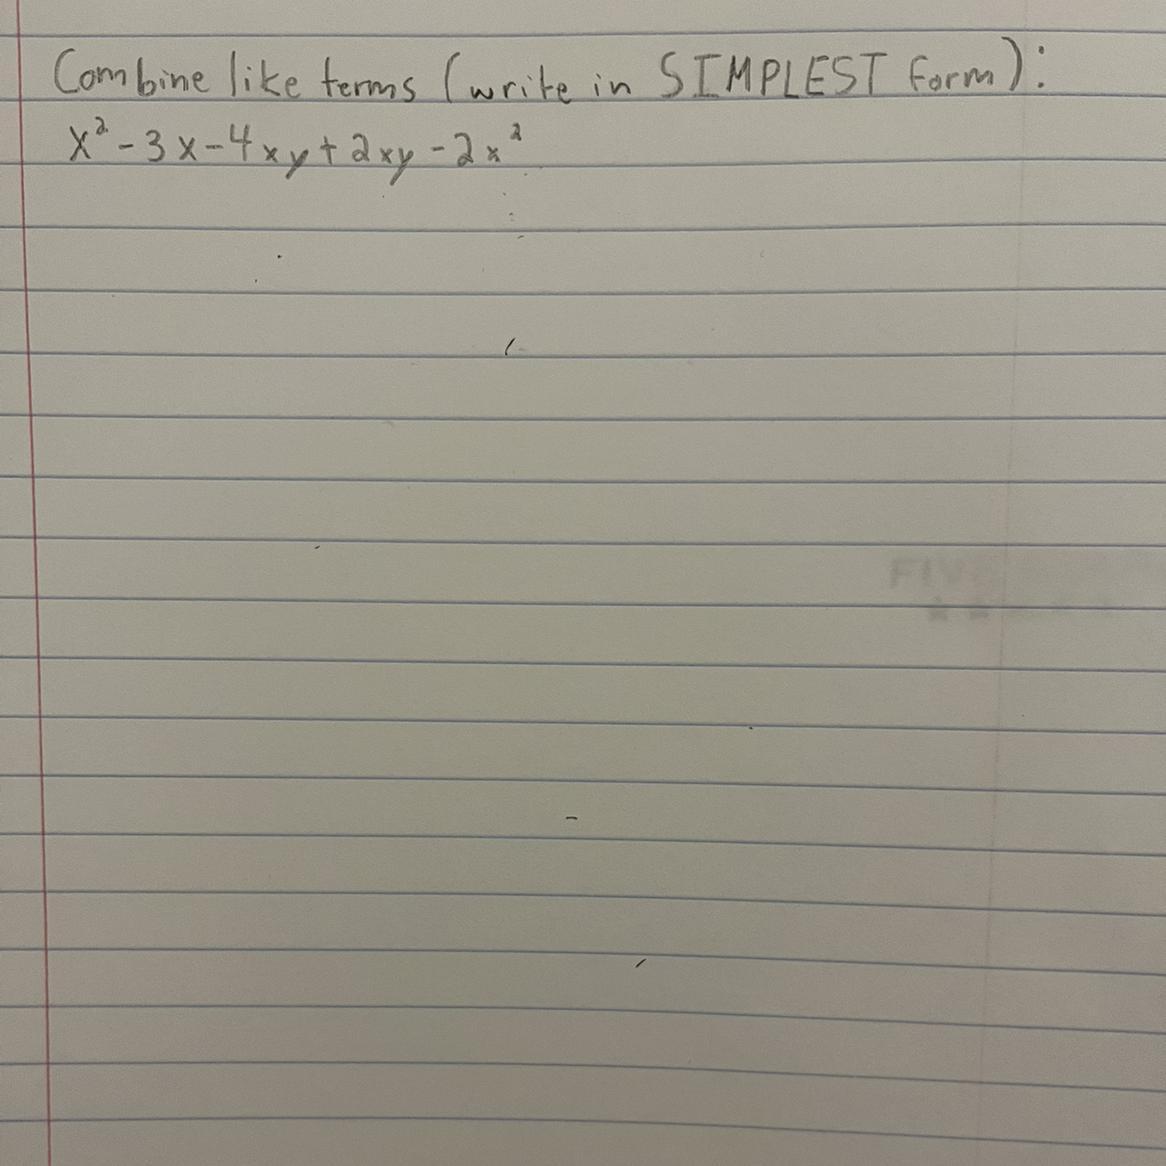 Combine like terms (write in SIMPLEST form):
x² - 3x - 4xy + 2xy - 2x²
FIV